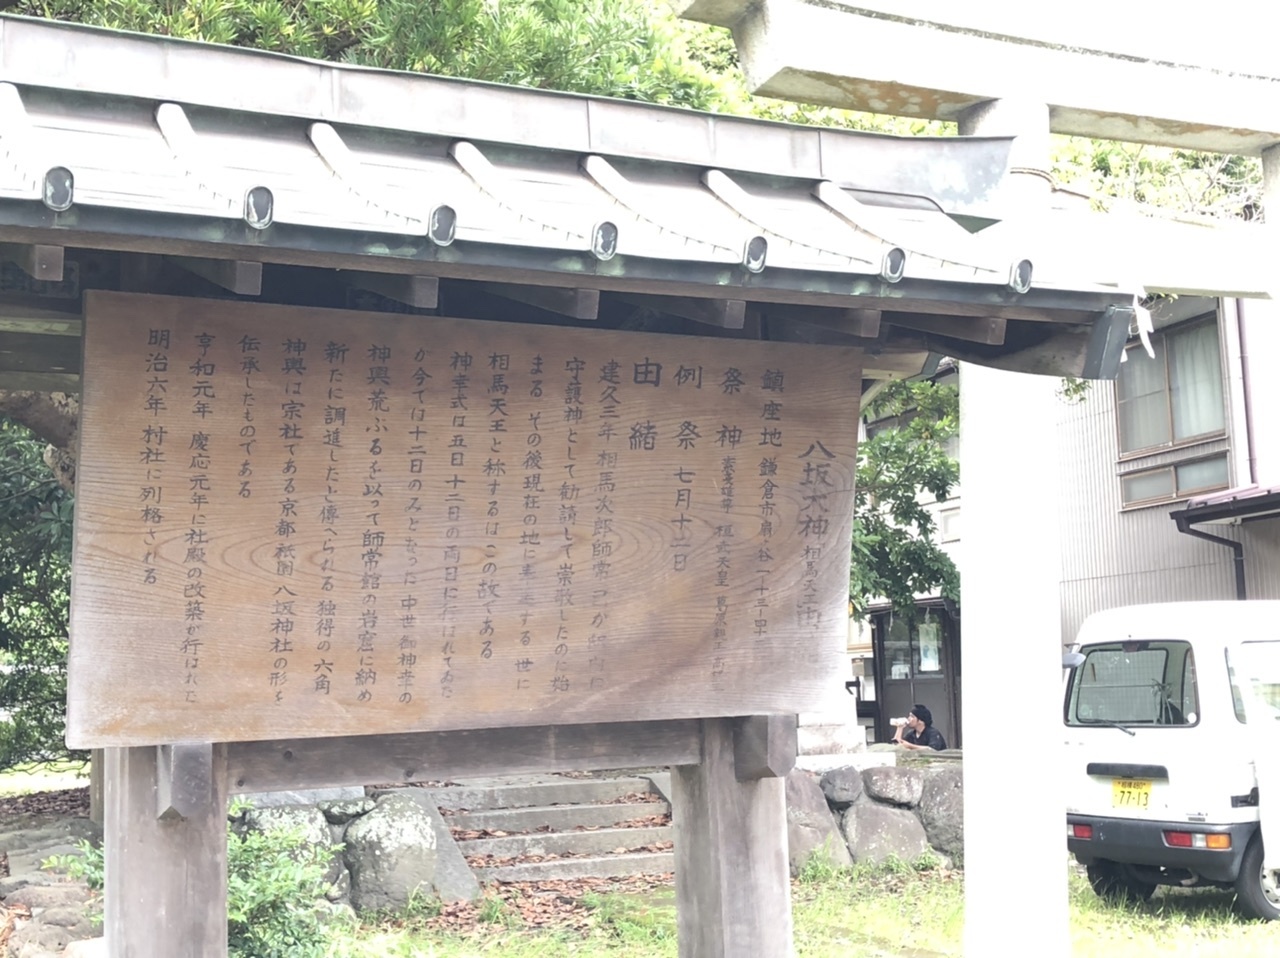 八坂大神 相馬天王
鎮座地 鎌倉市扇ヶ谷一ー十三ー四十
祭神 素戔雄尊 桓武天皇 葛原親王 高
例祭 七月十二日
由緒
建久三年 相馬次郎師常
守護神として勧請して崇敬したのに始
まる その後現在の地に する 世に
相馬天王と称するはこの故である
神幸式は五日 十二日の両日に行はれてゐた
が今では十二日のみとなった 中世御神幸の
神輿荒ぶるを以って師常館の岩窟に納め
新たに調進したと傳へられる 独得の六角
神輿は宗社である京都祇園八坂神社の形を
伝承したものである
享和元年 慶応元年に社殿の改築が行はれた
明治六年村社に列格される
77-13